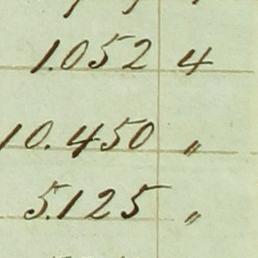 1.052 4
10.450 "
5.125 "